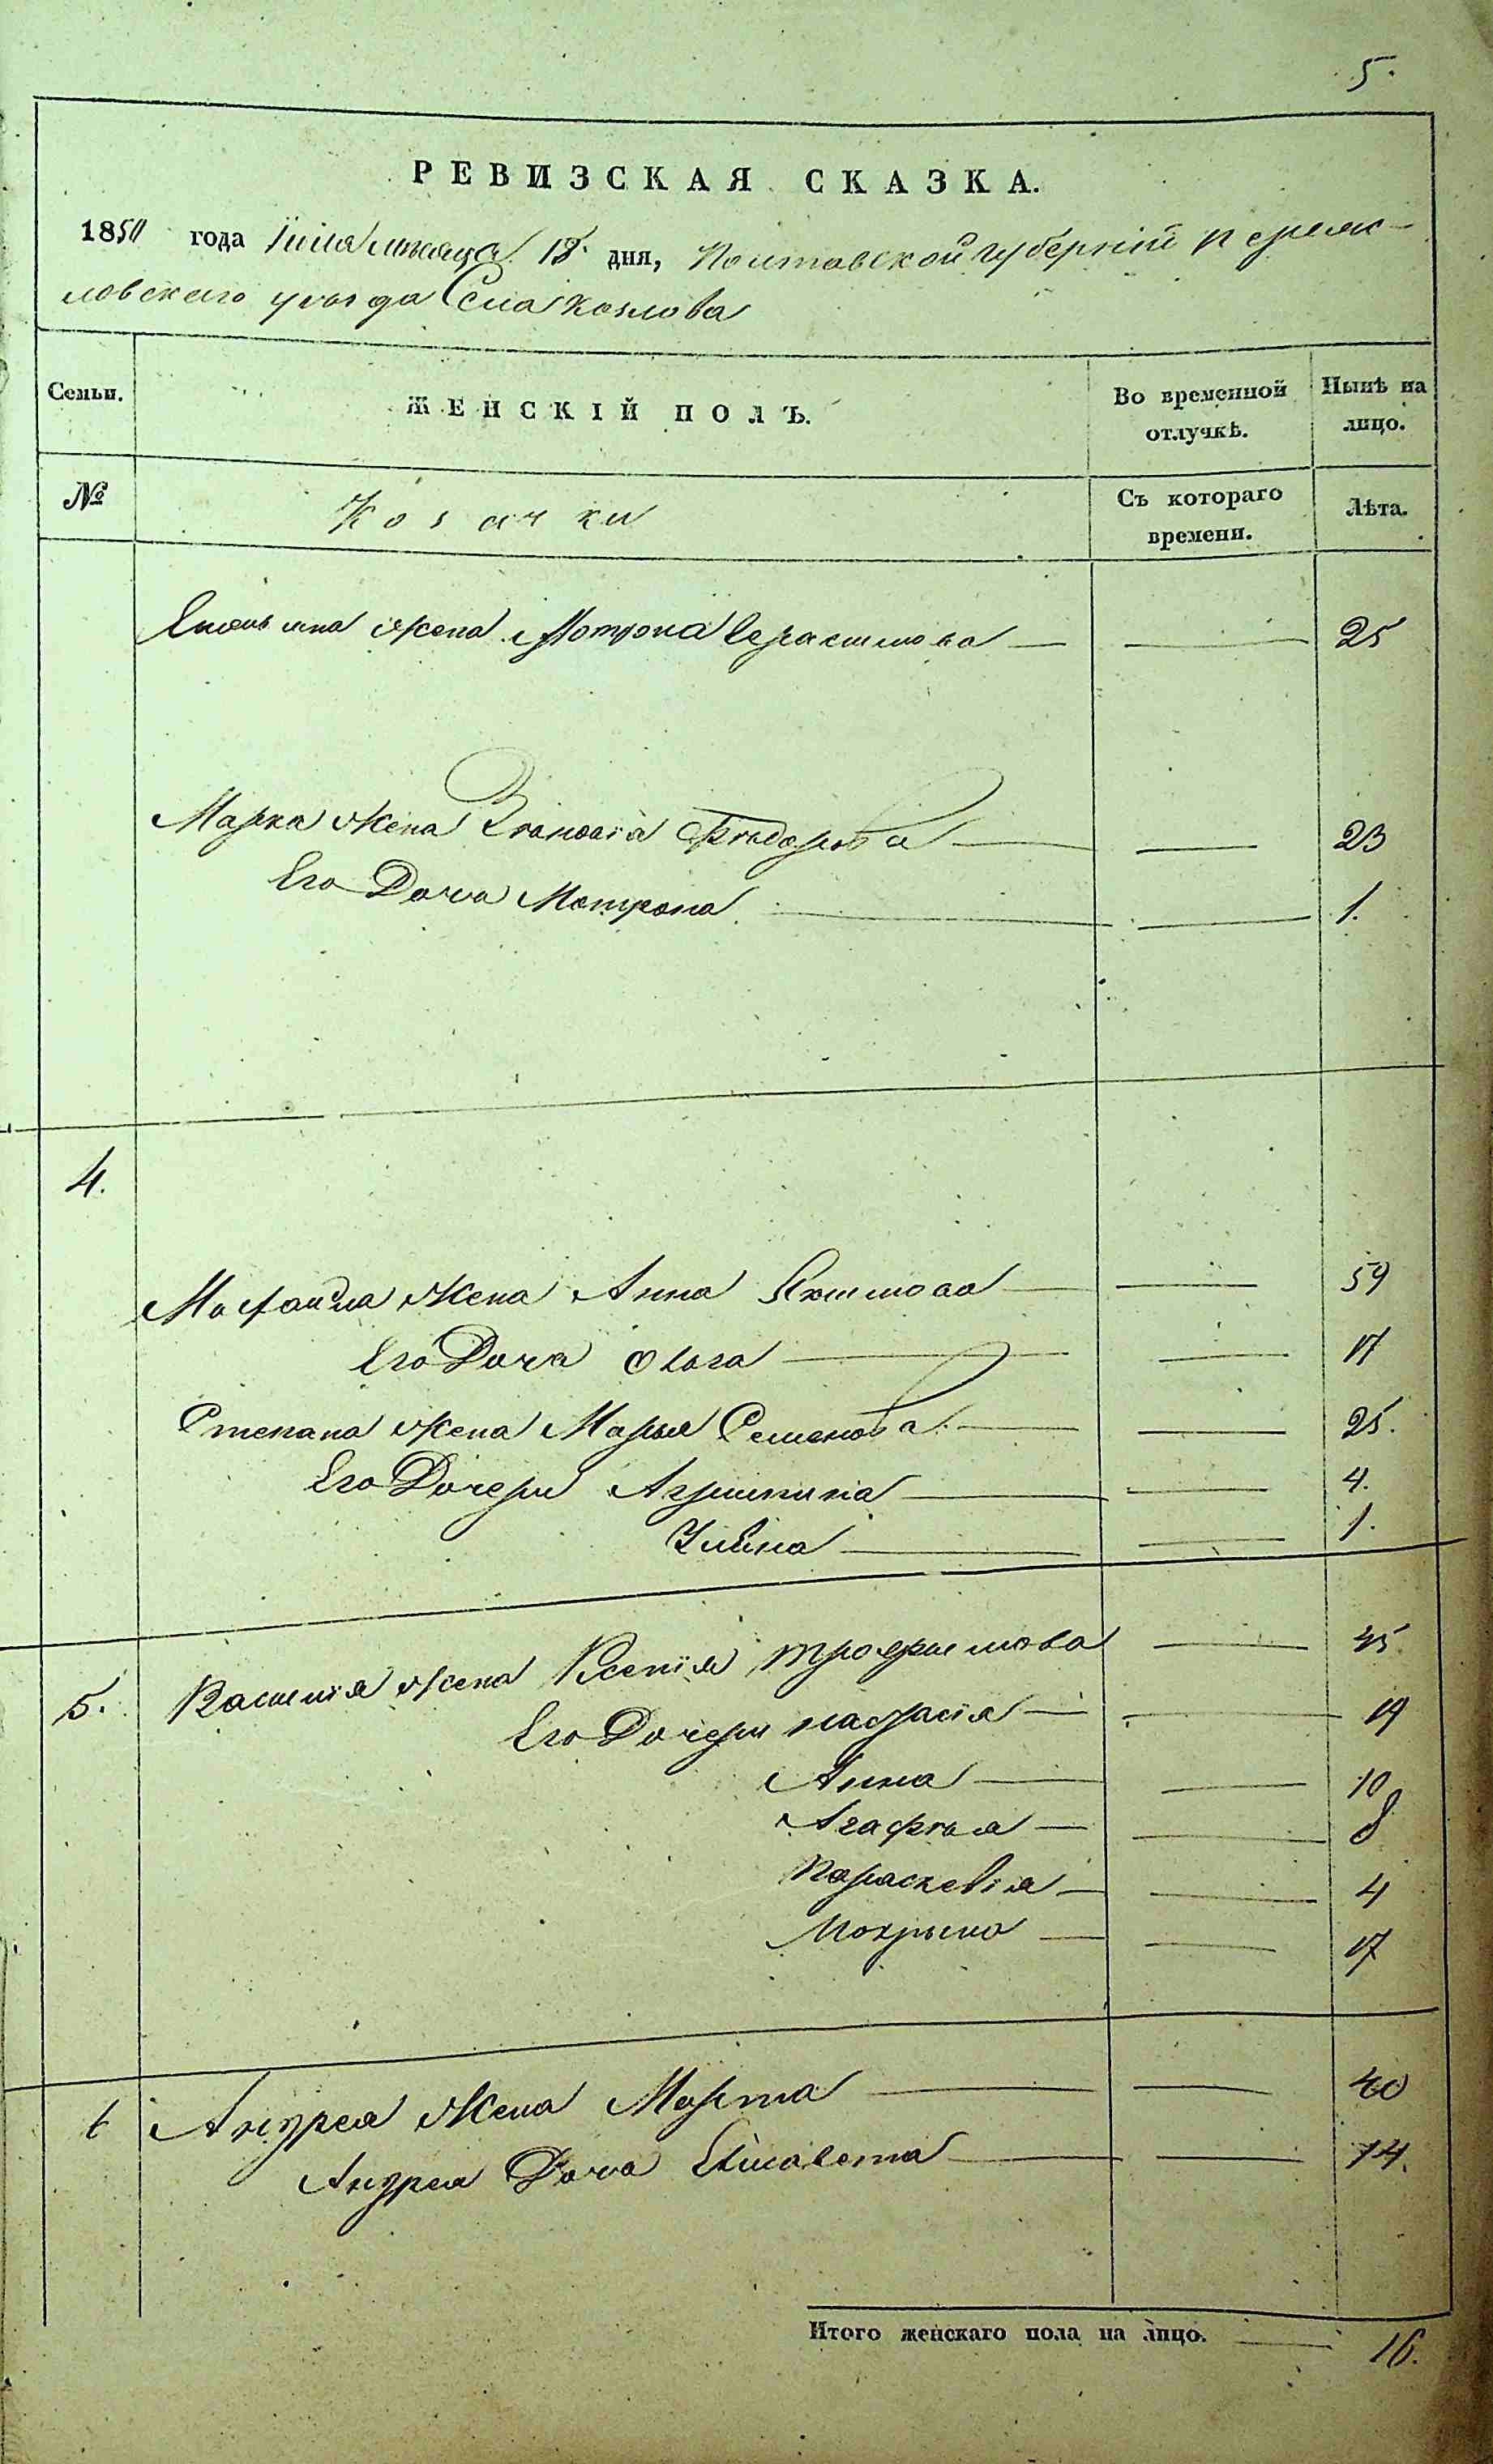 5.
РЕВИЗСКАЯ СКАЗКА.
1850 года Іюля месяца 18 дня, Полтавской губерніи Переяс-
ловскаго уезда Села Козлова
Семьи. ЖЕНСКІЙ ПОЛЪ. Во временной отлучкѣ. Нынѣ на лицо.
№ Козачки Съ котораго времени. Лѣта.
жена Мотрона Герасимова — — 25
Марка жена Федорова — — 23
Его Доча Мотрона — — 1.
4.
Михаила жена Анна Якимова — — 59
Его Доча Ольга — — 17
Степана жена Марья Семенова — — 25.
Его Дочери Агрипина — — 4.
Улияна — — 1.
5. Василія жена Ксенія Трофимова — 45
Его Дочери Настасія — — 19
Анна — — 10
Агафья — — 8
Параскевія — — 4
Мокрына — — 17
6 Андрея жена Марта — — 40
Андрея Доча Елисавета — — 14.
Итого женскаго пола на лицо. — 16.